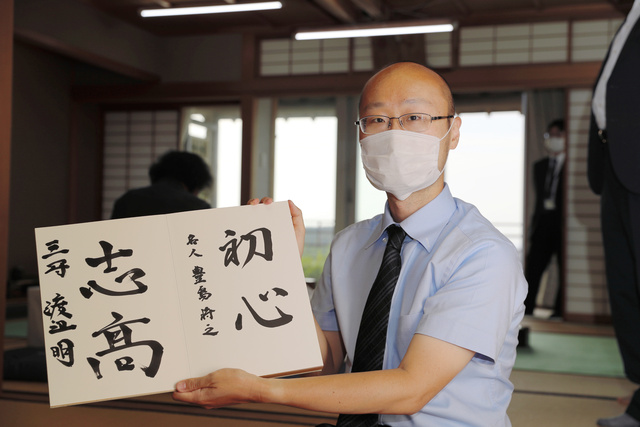 初心
名人 豊島将之
志高
三冠 渡辺明